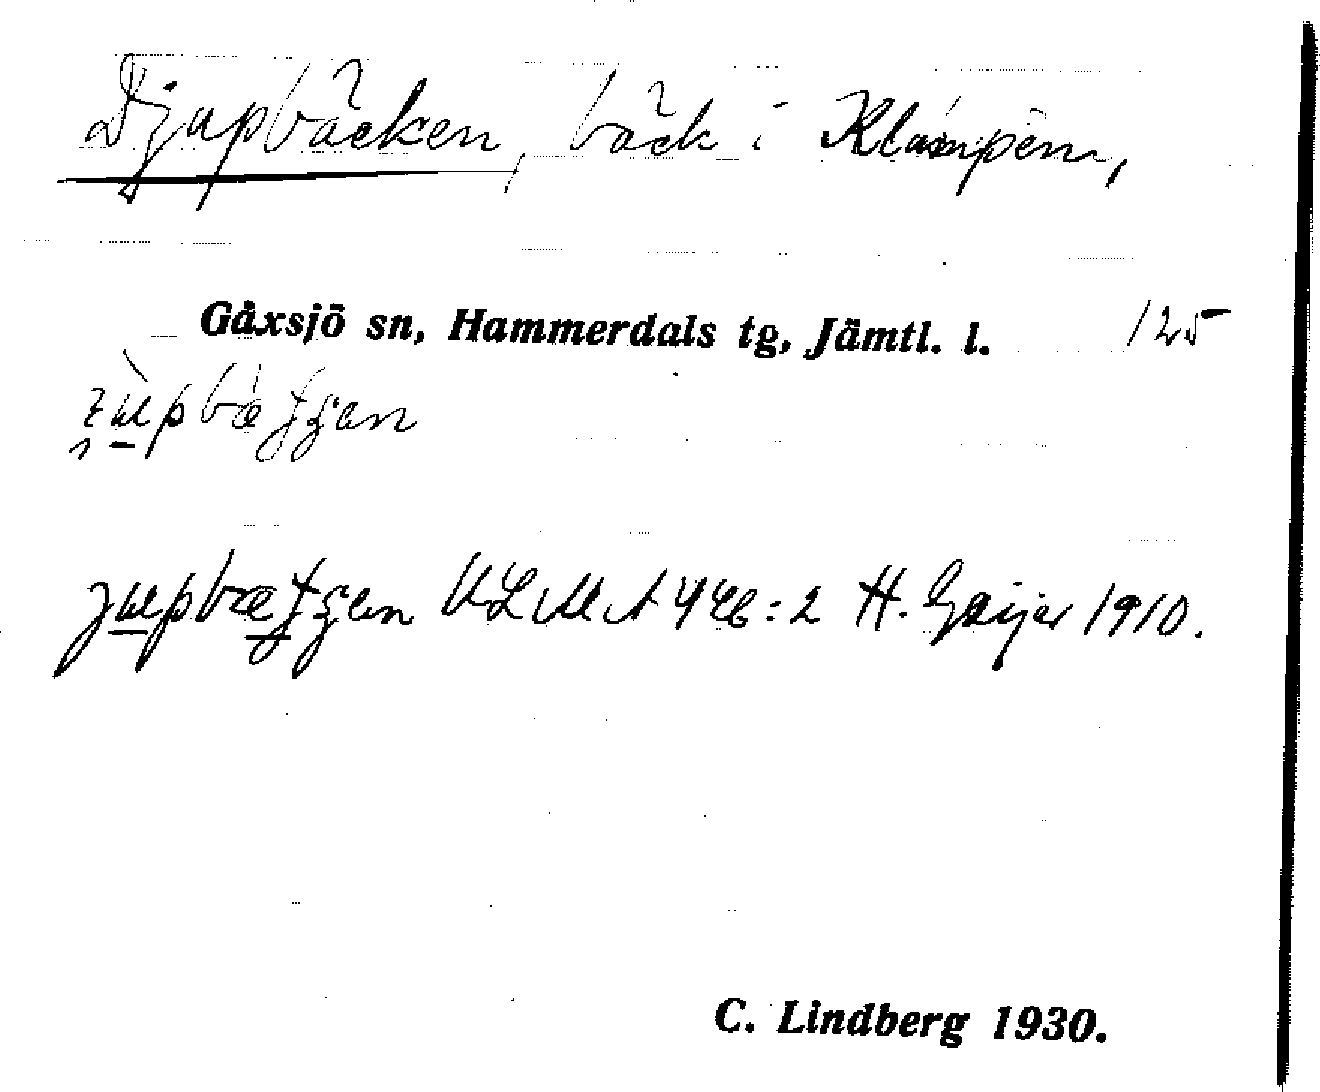 Djupbäcken, bäck i Klumpen,
Gåxsjö sn, Hammerdals tg, Jämtl. l. 125
ULMA 446:2 H. Geijer 1910.
C. Lindberg 1930.